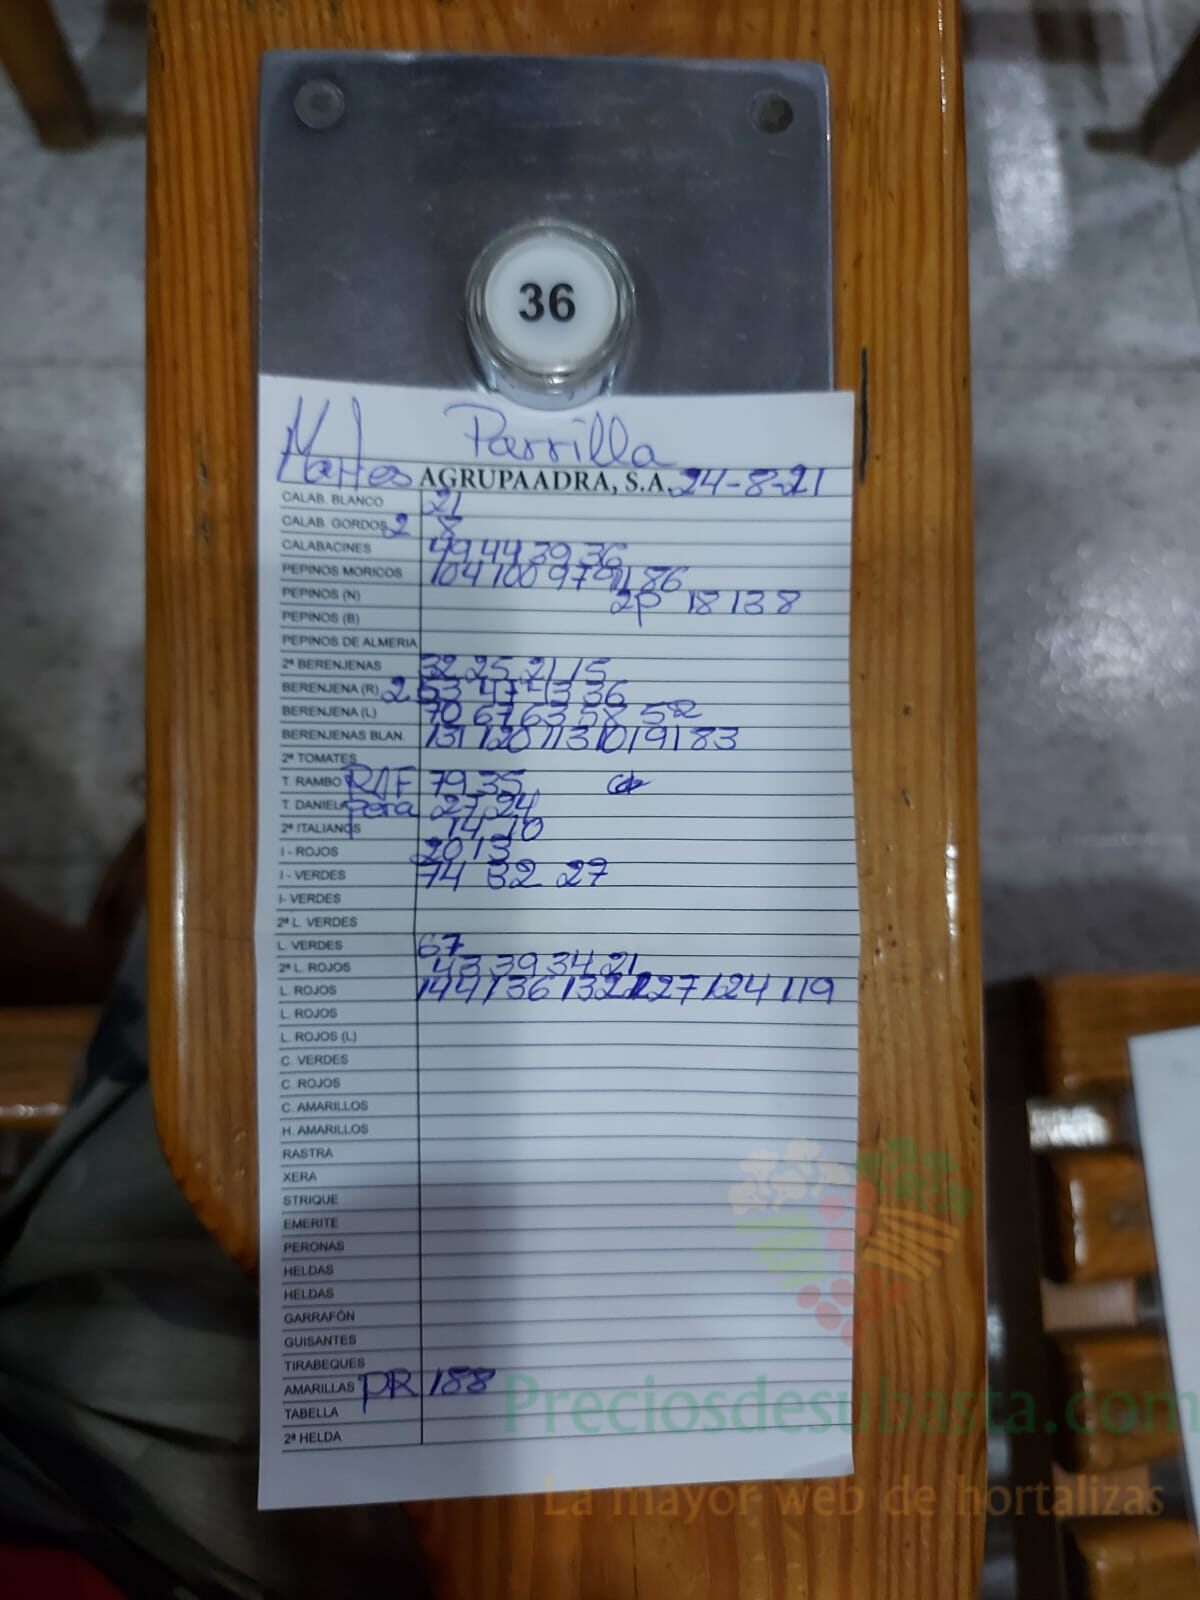 36
Parrilla
Martes AGRUPAADRA, S.A. 24-8-21
CALAB. BLANCO 21
CALAB. GORDOS 2 8
CALABACINES 49 44 39 36
PEPINOS MORICOS 104 100 97 91 86
PEPINOS (N) 2p 18 13 8
PEPINOS (B)
PEPINOS DE ALMERIA
2ª BERENJENAS 32 25 21 15
BERENJENA (R) 2 53 47 43 36
BERENJENA (L) 70 67 63 58 52
BERENJENAS BLAN. 131 120 113 101 91 83
2ª TOMATES
T. RAMBO RAF 79 35
T. DANIELA pera 27 24
2ª ITALIANOS 14 10
I - ROJOS 20 13
I - VERDES 74 32 27
I- VERDES
2ª L. VERDES
L. VERDES 67
2ª L. ROJOS 43 39 34 21
L. ROJOS 144 136 132 127 124 119
L. ROJOS
L. ROJOS (L)
C. VERDES
C. ROJOS
C. AMARILLOS
H. AMARILLOS
RASTRA
XERA
STRIQUE
EMERITE
PERONAS
HELDAS
HELDAS
GARRAFÓN
GUISANTES
TIRABEQUES
AMARILLAS PR 188
TABELLA
2ª HELDA
Preciosdesubasta.com
La mayor web de hortalizas